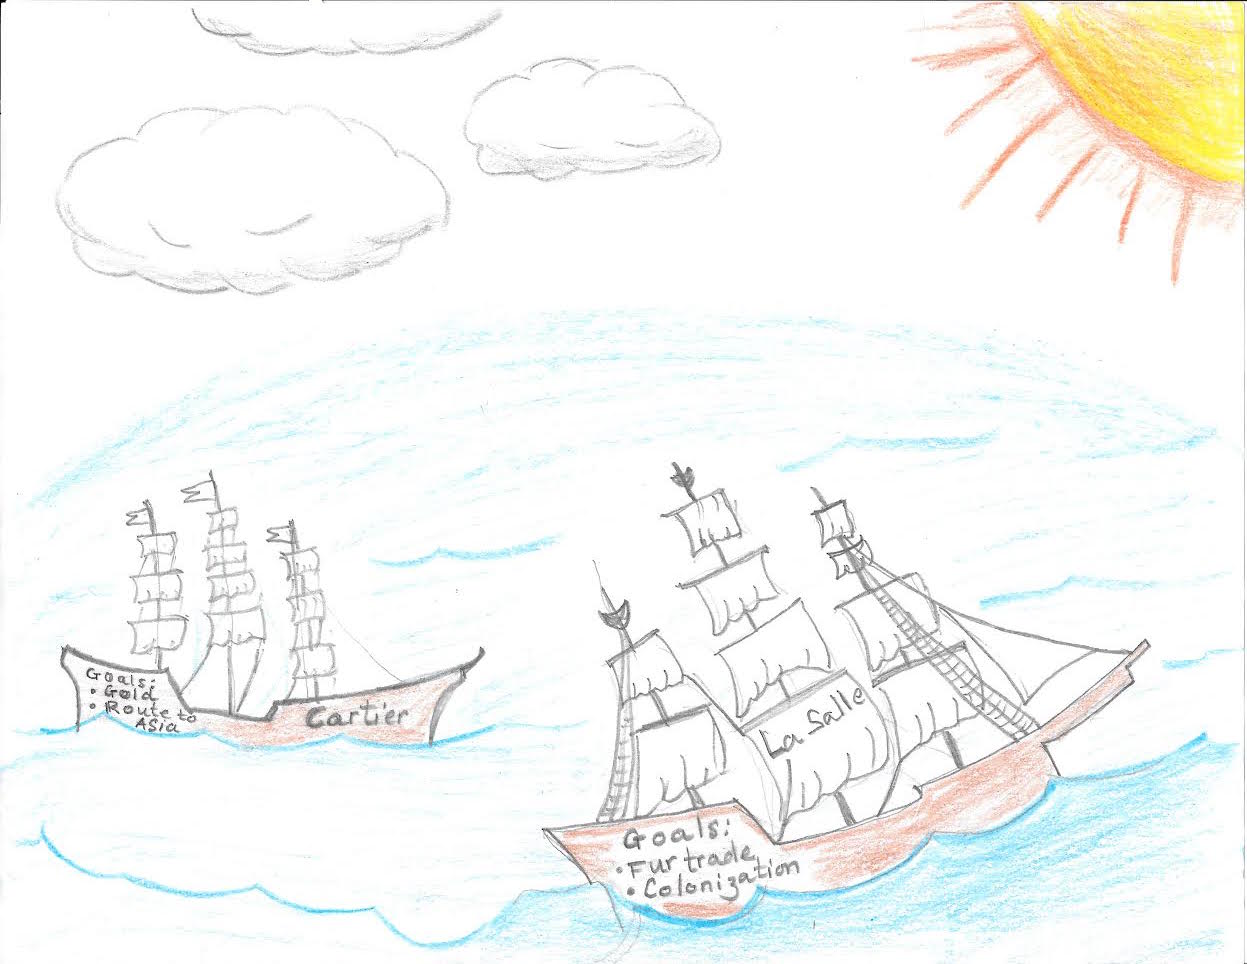 Goals:
• Gold
• Route to
Asia
Cartier
La Salle
Goals:
• Fur trade
• Colonization